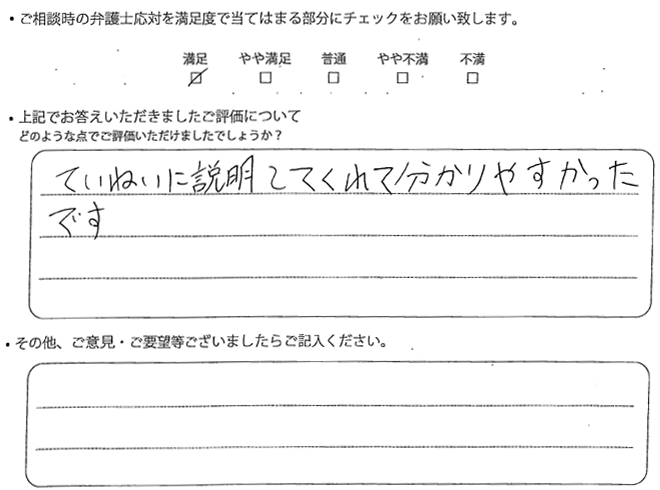 ・ご相談時の弁護士応対を満足度で当てはまる部分にチェックをお願い致します。
満足 やや満足 普通 やや不満 不満
☑ □ □ □ □
・上記でお答えいただきましたご評価について
どのような点でご評価いただけましたでしょうか？
ていねいに説明してくれて分かりやすかった
です
・その他、ご意見・ご要望等ございましたらご記入ください。